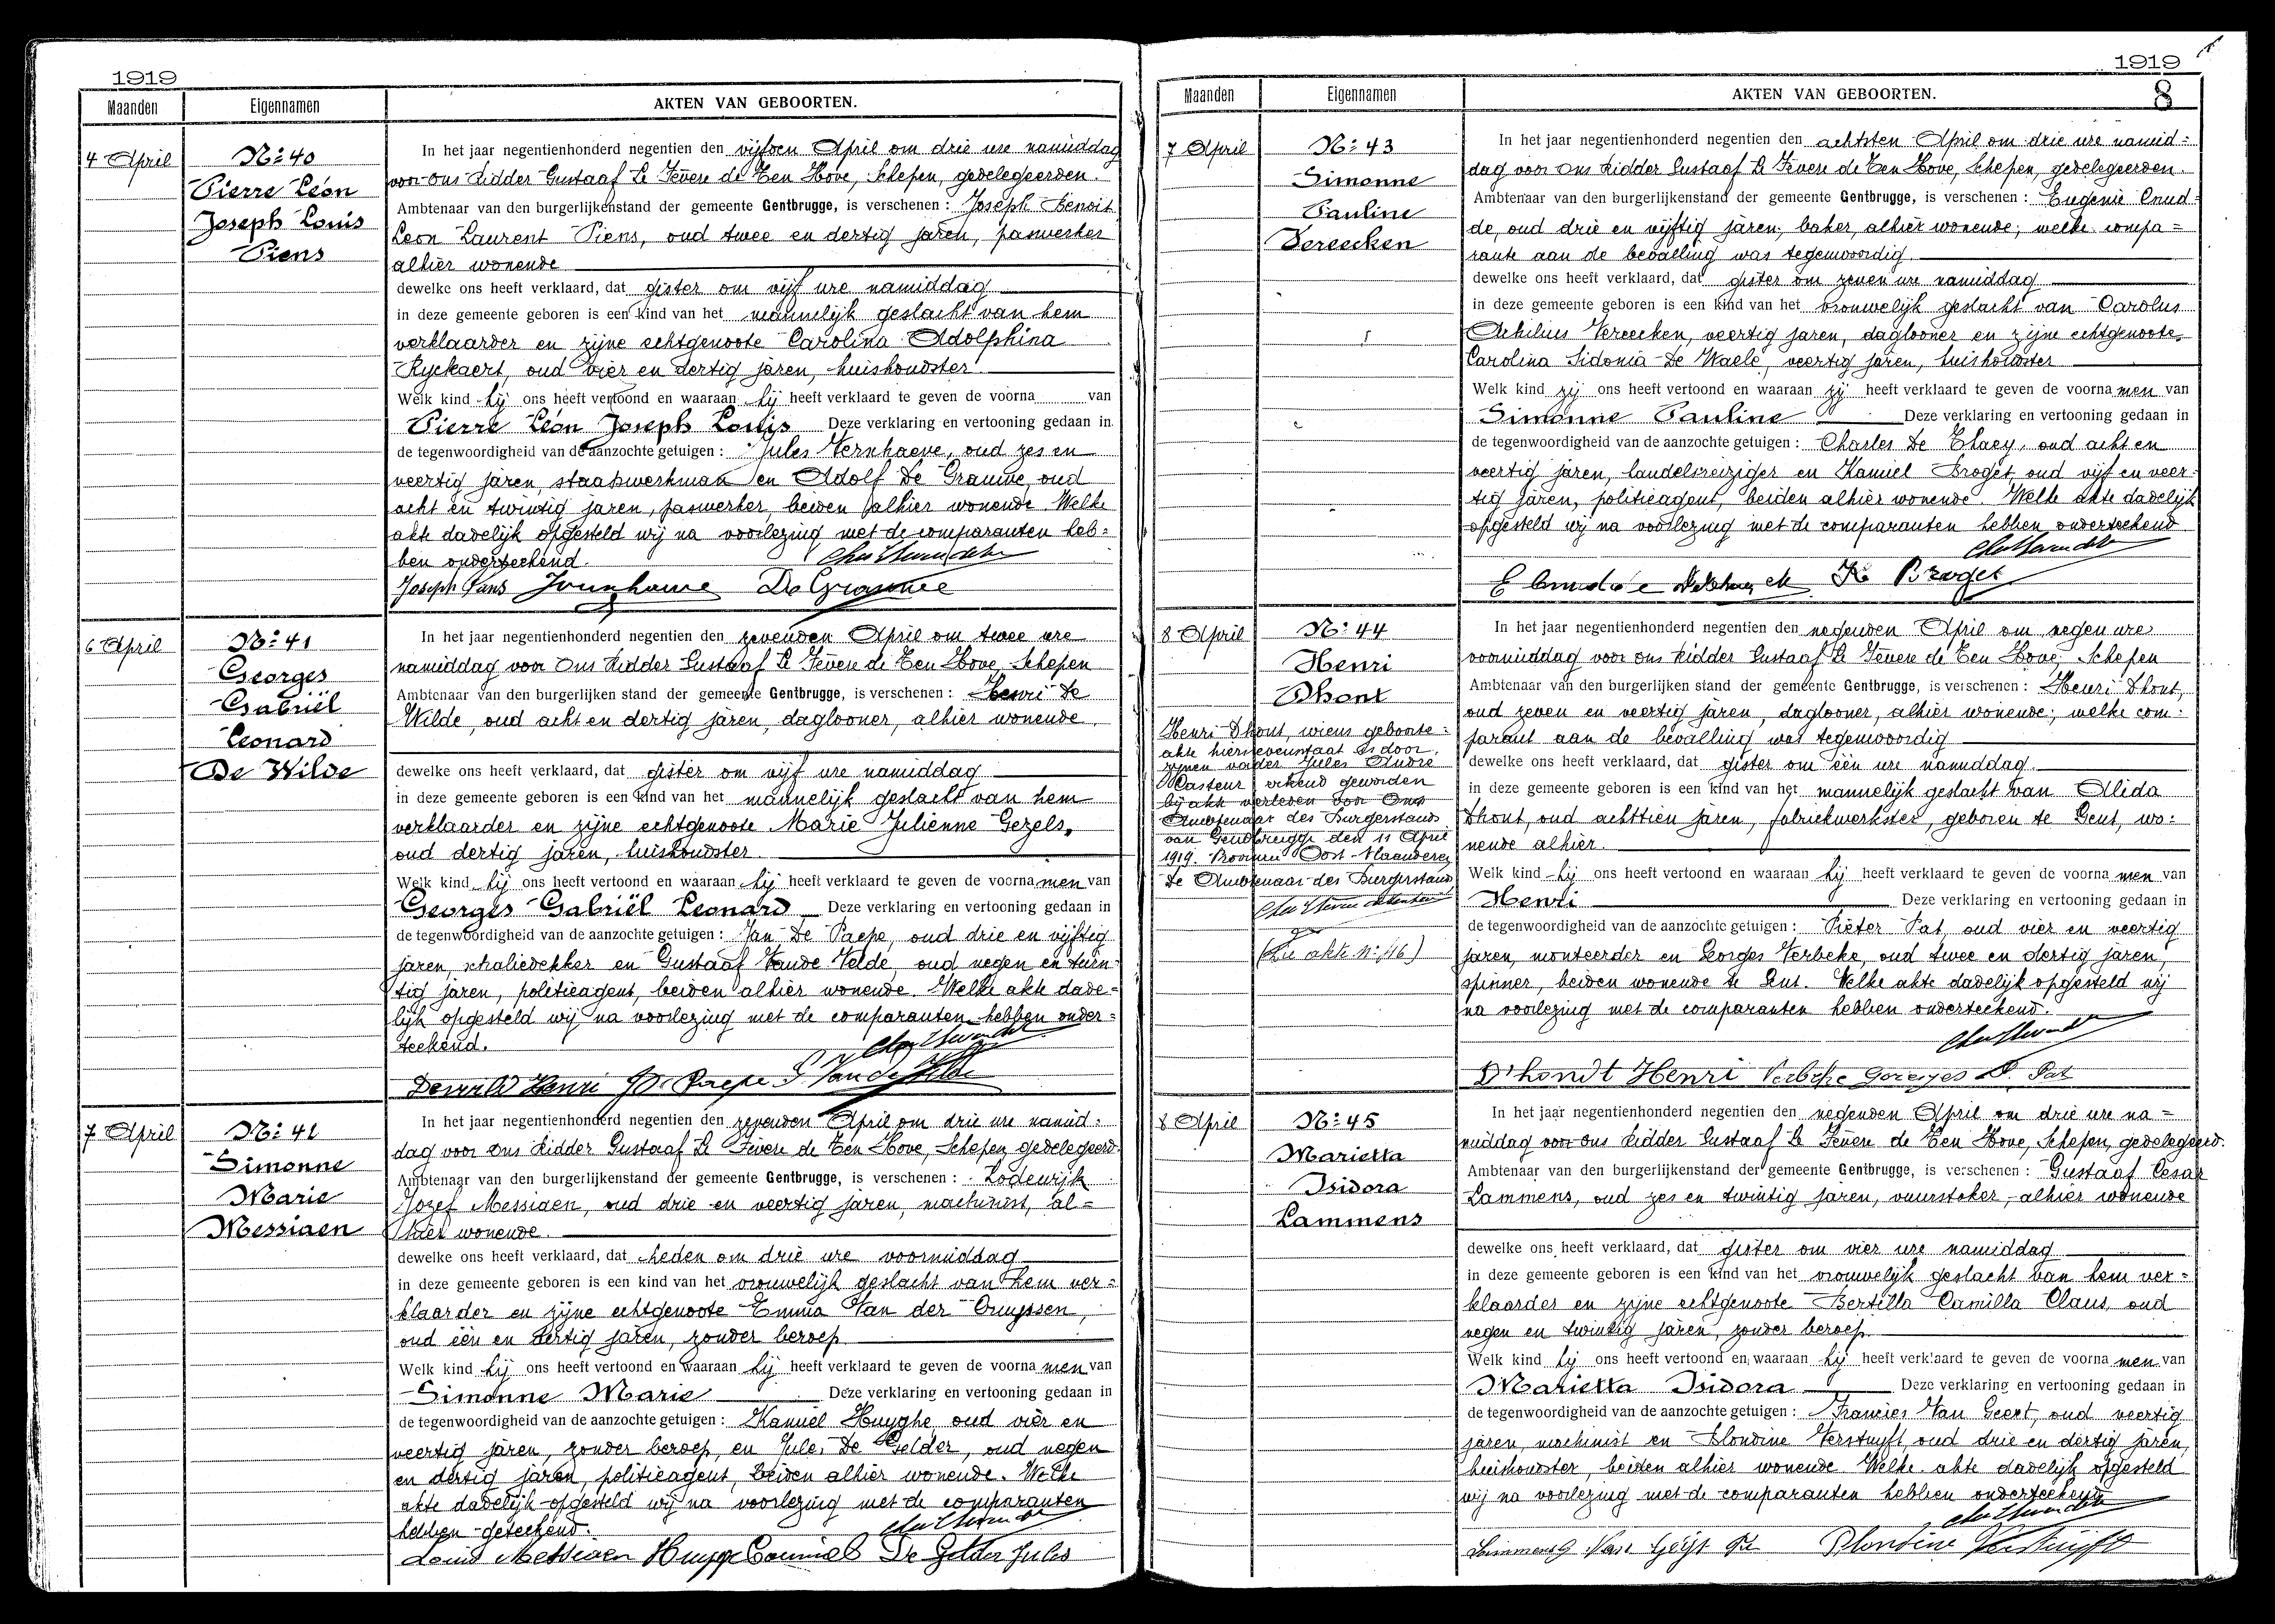 1919
Maanden Eigennamen AKTEN VAN GEBOORTEN.
4 April
Nr 40
Pierre Léon
Joseph Louis
Piens
In het jaar negentienhonderd negentien den vijfden April om drie ure namiddag
voor ons Ridder Gustaaf Le Fèvere de Ten Hove, Schepen, gedelegeerden
Ambtenaar van den burgerlijkenstand der gemeente Gentbrugge, is verschenen : Joseph Benoit
Leon Laurent Piens, oud twee en dertig jaren, paswerker
alhier wonende
dewelke ons heeft verklaard, dat gister om vijf ure namiddag
in deze gemeente geboren is een kind van het mannelijk geslacht van hem
verklaarder en zijne echtgenoote Carolina Adolphina
Ryckaert, oud vier en dertig jaren, huishoudster
Welk kind hij ons heeft vertoond en waaraan hij heeft verklaard te geven de voorna van
Pierre Léon Joseph Louis Deze verklaring en vertooning gedaan in
de tegenwoordigheid van de aanzochte getuigen : Jules Vernhaeve, oud zes en
veertig jaren, staatswerkman en Adolf De Grauwe, oud
acht en twintig jaren, paswerker, beiden alhier wonende. Welke
akte dadelijk opgesteld wij na voorlezing met de comparanten heb=
ben onderteekend.
6 April
Nr 41
Georges
Gabriël
Leonard
De Wilde
In het jaar negentienhonderd negentien den zevenden April om twee ure
namiddag voor ons Ridder Gustaaf Le Fèvere de Ten Hove, Schepen
Ambtenaar van den burgerlijken stand der gemeente Gentbrugge, is verschenen : Henri De
Wilde, oud acht en dertig jaren, daglooner, alhier wonende
dewelke ons heeft verklaard, dat gister om vijf ure namiddag
in deze gemeente geboren is een kind van het mannelijk geslacht van hem
verklaarder en zijne echtgenoote Marie Julienne Gezels,
oud dertig jaren, huishoudster
Welk kind hij ons heeft vertoond en waaraan hij heeft verklaard te geven de voorna men van
Georges Gabriël Leonard Deze verklaring en vertooning gedaan in
de tegenwoordigheid van de aanzochte getuigen : Jan De Paepe, oud drie en vijftig
jaren, schaliedekker en Gustaaf Vande Velde, oud negen en twin=
tig jaren, politieagent, beiden alhier wonende. Welke akte dade=
lijk opgesteld wij na voorlezing met de comparanten hebben onder=
teekend.
7 April
Nr 41
Simonne
Marie
Messiaen
In het jaar negentienhonderd negentien den zevenden April om drie ure namid=
dag voor ons Ridder Gustaaf Le Fèvere de Ten Hove, Schepen, gedelegeerd
Ambtenaar van den burgerlijkenstand der gemeente Gentbrugge, is verschenen : Lodewijk
Jozef Messiaen, oud drie en veertig jaren, machinist, al=
hier wonende.
dewelke ons heeft verklaard, dat heden om drie ure voormiddag
in deze gemeente geboren is een kind van het vrouwelijk geslacht van hem ver=
klaarder en zijne echtgenoote Emma Van der Cruyssen,
oud één en dertig jaren, zonder beroep
Welk kind hij ons heeft vertoond en waaraan hij heeft verklaard te geven de voorna men van
Simonne Marie Deze verklaring en vertooning gedaan in
de tegenwoordigheid van de aanzochte getuigen : Kamiel Huyghe, oud vier en
veertig jaren, zonder beroep, en Jules De Gelder, oud negen
en dertig jaren, politieagent, beiden alhier wonende. Welke
akte dadelijk opgesteld wij na voorlezing met de comparanten
hebben geteekend.
Louis Messiaen De Gelder Jules
1919
8
Maanden Eigennamen AKTEN VAN GEBOORTEN.
7 April
Nr 43
Simonne
Pauline
Vereecken
In het jaar negentienhonderd negentien den achtsten April om drie ure namid=
dag voor ons Ridder Gustaaf Le Fèvere de Ten Hove, Schepen, gedelegeerden
Ambtenaar van den burgerlijkenstand der gemeente Gentbrugge, is verschenen : Eugenie Cnud=
de, oud drie en vijftig jaren, baker, alhier wonende; welke compa=
rante aan de bevalling was tegenwoordig
dewelke ons heeft verklaard, dat gister om zeven ure namiddag
in deze gemeente geboren is een kind van het vrouwelijk geslacht van Carolus
Achilius Vereecken, veertig jaren, daglooner en zijne echtgenoote
Carolina Sidonia De Waele, veertig jaren, huishoudster
Welk kind zij ons heeft vertoond en waaraan zij heeft verklaard te geven de voorna men van
Simonne Pauline Deze verklaring en vertooning gedaan in
de tegenwoordigheid van de aanzochte getuigen : Charles De Claey, oud acht en
veertig jaren, handelsreiziger en Kamiel Broget, oud vijf en veer=
tig jaren, politieagent, beiden alhier wonende. Welke akte dadelijk
opgesteld wij na voorlezing met de comparanten hebben onderteekend
K Broget
8 April
Nr 44
Henri
Dhont
Henri Dhont, wiens geboorte=
akte hiernevenstaat is door
zijnen vader Jules André
Casteur erkend geworden
bij akte verleden voor Ons
Ambtenaar des Burgerstands
van Gendbrugge den 11 April
1919. Provincie Oost-Vlaanderen
De Ambtenaar des Burgerstands
(Zie akte Nr 46)
In het jaar negentienhonderd negentien den negenden April om negen ure
voormiddag voor ons Ridder Gustaaf Le Fèvere de Ten Hove, Schepen
Ambtenaar van den burgerlijken stand der gemeente Gentbrugge, is verschenen : Henri Dhont,
oud zeven en veertig jaren, daglooner, alhier wonende; welke com=
parant aan de bevalling was tegenwoordig
dewelke ons heeft verklaard, dat gister om één ure namiddag
in deze gemeente geboren is een kind van het mannelijk geslacht van Alida
Dhont, oud achttien jaren, fabriekwerkster, geboren te Gent, wo=
nende alhier.
Welk kind hij ons heeft vertoond en waaraan hij heeft verklaard te geven de voorna men van
Henri Deze verklaring en vertooning gedaan in
de tegenwoordigheid van de aanzochte getuigen : Pieter Pat, oud vier en veertig
jaren, monteerder en Georges Verbeke, oud twee en dertig jaren,
spinner, beiden wonende te Gent. Welke akte dadelijk opgesteld wij
na voorlezing met de comparanten hebben onderteekend.
D'hondt Henri Verbeke Georges P. Pat
8 April
Nr 45
Marietta
Isidora
Lammens
In het jaar negentienhonderd negentien den negenden April om drie ure na=
middag voor ons Ridder Gustaaf Le Fèvere de Ten Hove, Schepen, gedelegeerd.
Ambtenaar van den burgerlijkenstand der gemeente Gentbrugge, is verschenen : Gustaaf Cesar
Lammens, oud zes en twintig jaren, vuurstoker, alhier wonende
dewelke ons heeft verklaard, dat gister om vier ure namiddag
in deze gemeente geboren is een kind van het vrouwelijk geslacht van hem ver=
klaarder en zijne echtgenoote Bertilla Camilla Claus, oud
negen en twintig jaren, zonder beroep
Welk kind hij ons heeft vertoond en waaraan hij heeft verklaard te geven de voorna men van
Marietta Isidora Deze verklaring en vertooning gedaan in
de tegenwoordigheid van de aanzochte getuigen : Francies Van Geert, oud veertig
jaren, machinist en Blondine Verstuyft, oud drie en dertig jaren,
huishoudster, beiden alhier wonende. Welke akte dadelijk opgesteld
wij na voorlezing met de comparanten hebben onderteekend
Blondine Verstuyft